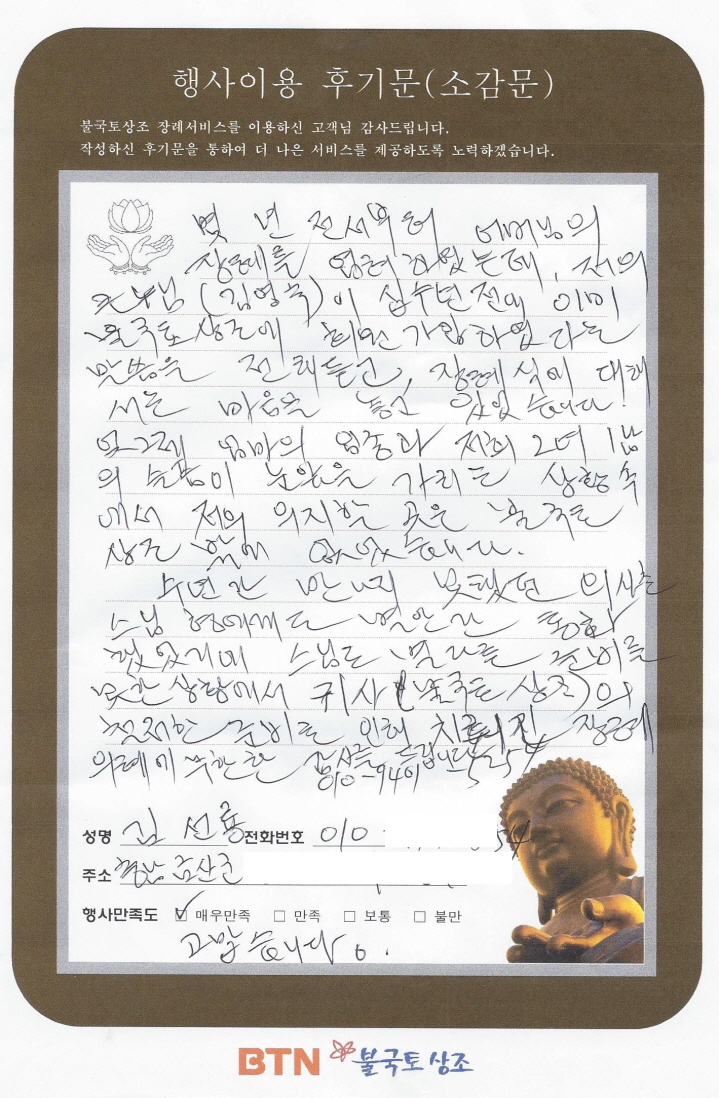 행사이용 후기문(소감문)
불국토상조 장례서비스를 이용하신 고객님 감사드립니다.
작성하신 후기문을 통하여 더 나은 서비스를 제공하도록 노력하겠습니다.
몇 년 전서부터 어머님의
장례를 염려하였는데, 저의
큰누님 (김영숙)이 십수년전에 이미
불국토 상조에 회원가입하였다는
말씀을 전해듣고, 장례식에 대해
서는 마음을 놓고 있었습니다!
엊그제 엄마의 임종과 저희 2녀 1남
의 슬픔이 눈앞을 가리는 상황속
에서 저의 의지할 곳은 불국토
상조 밖에 없었습니다.
수년간 만나지 못했던 의사촌
스님 형에게도 몇안간 통화
했었기에 스님도 별다른 준비를
못한 상황에서 귀사 (불국토 상조)의
철저한 준비로 인해 치뤄진 장례
의례에 무한한 감사를 드립니다
010-9401 5254
성명 김선룡 전화번호 010 54
주소 충남 금산군
행사만족도 ☑ 매우만족 □ 만족 □ 보통 □ 불만
고맙습니다.
BTN 불국토상조